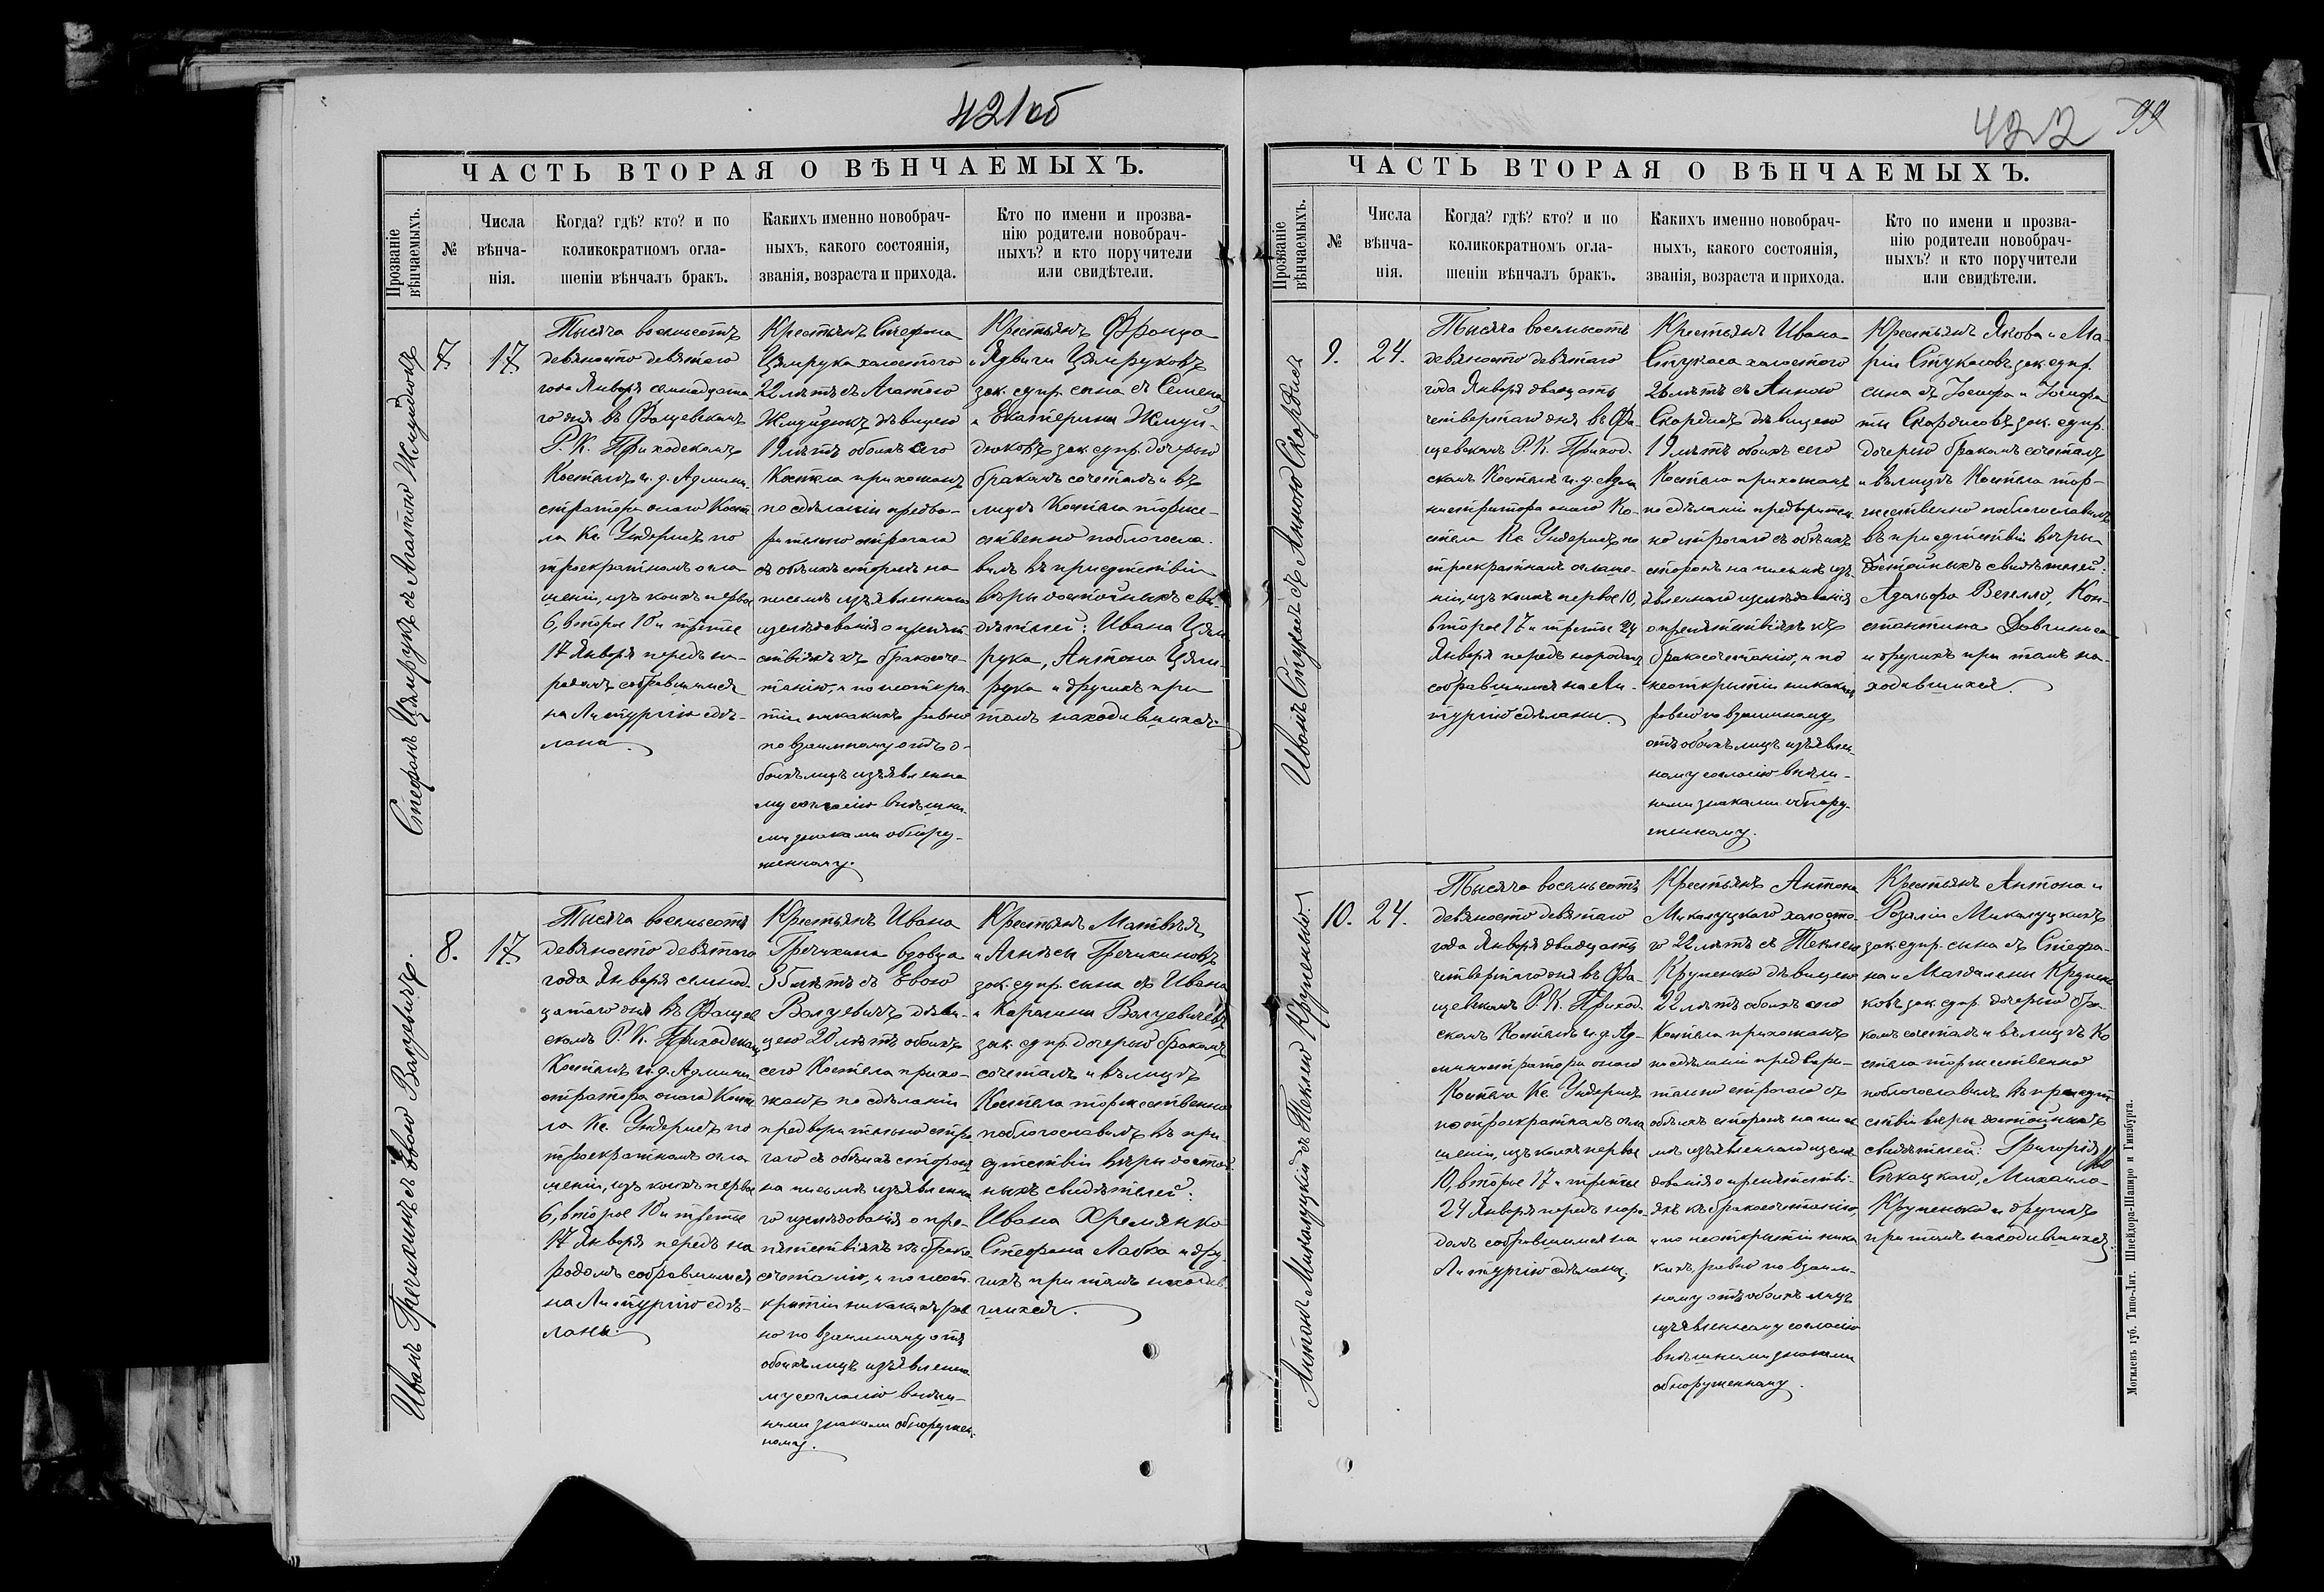 421об
ЧАСТЬ ВТОРАЯ О ВѢНЧАЕМЫХЪ.
Прозваніе
вѣнчаемыхъ.
№
Числа
вѣнча-
нія.
Когда? гдѣ? кто? и по
коликократномъ огла-
шеніи вѣнчалъ бракъ.
Какихъ именно новобрач-
ныхъ, какого состоянія,
званія, возраста и прихода.
Кто по имени и прозва-
нію родители новобрач-
ныхъ? и кто поручители
или свидѣтели.
Стефанъ Цямрукъ съ Агатою Жмуйдюкъ
7.
17.
Тысяча восемьсотъ
девяносто девятаго
года Января семнадцата-
го дня въ Фащевскомъ
Р. К. Приходскомъ
Костелѣ и. д. Админи-
стратора онаго Косте
ла Кс. Ундерисъ по
троекратномъ огла-
шеніи, изъ коихъ первое
6, второе 10 и третье
17 Января передъ на-
родомъ собравшимся
на Литургію сдѣ-
ланы.
Крестьянъ Стефана
Цямрука холостого
22 лѣтъ съ Агатою
Жмуйдюкъ дѣвицею
19 лѣтъ обоихъ сего
Костела прихожанъ
по сдѣланіи предва-
рительно строгаго
съ обѣихъ сторонъ на
письмѣ изъявленнаго
изслѣдованія о препят
ствіяхъ къ бракосоче-
танію, и по неоткры-
тіи никакихъ равно
по взаимному отъ о-
боихъ лицъ изъявленно
му согласію внѣшни-
ми знаками обнару-
женному.
Крестьянъ Франца
и Ядвиги Цямруковъ
зак. супр. сына съ Семена
и Екатерины Жмуй-
дюковъ зак. супр. дочерью
бракомъ сочеталъ и въ
лицѣ Костела торже-
ственно поблагосло-
вилъ въ присутствіи
вѣры достойныхъ сви-
дѣтелей: Ивана Цям
рука, Антона Цям-
рука и другихъ при
томъ находившихся.
Иванъ Гречихинъ съ Евою Валуевичъ.
8.
17.
Тысяча восемьсотъ
девяносто девятаго
года Января семнад-
цатаго дня въ Фащев
скомъ Р. К. Приходскомъ
Костелѣ и. д. Админи-
стратора онаго Косте
ла Кс. Ундерисъ по
троекратномъ огла-
шеніи, изъ коихъ первое
6, второе 10 и третье
17 Января передъ на
родомъ собравшимся
на Литургію сдѣ-
ланы.
Крестьянъ Ивана
Гречихина вдовца
35 лѣтъ съ Евою
Валуевичъ дѣви-
цею 20 лѣтъ обоихъ
сего Костела прихо-
жанъ по сдѣланіи
предварительно стро-
гаго съ обѣихъ сторонъ
на письмѣ изъявленна
го изслѣдованія о пре-
пятствіяхъ къ брако-
сочетанію, и по неот-
крытіи никакихъ рав
но по взаимному отъ
обоихъ лицъ изъявленно
му согласію внѣш-
ними знаками обнаружен-
ному.
Крестьянъ Матвѣя
и Агнѣсы Гречихиновъ
зак. супр. сына съ Ивана
и Каролины Валуевичевъ
зак. супр. дочерью бракомъ
сочеталъ и въ лицѣ
Костела торжественно
поблагословилъ въ при-
сутствіи вѣры достой-
ныхъ свидѣтелей:
Ивана Хремянко
Стефана Лабко и дру-
гихъ при томъ находив-
шихся.
422
99
ЧАСТЬ ВТОРАЯ О ВѢНЧАЕМЫХЪ.
Прозваніе
вѣнчаемыхъ.
№
Числа
вѣнча-
нія.
Когда? гдѣ? кто? и по
коликократномъ огла-
шеніи вѣнчалъ бракъ.
Какихъ именно новобрач-
ныхъ, какого состоянія,
званія, возраста и прихода.
Кто по имени и прозва-
нію родители новобрач-
ныхъ? и кто поручители
или свидѣтели.
Иванъ Стукасъ съ Анною Скордись
9.
24.
Тысяча восемьсотъ
девяносто девятаго
года Января двадцать
четвертаго дня въ Фа-
щевскомъ Р. К. Приход-
скомъ Костелѣ и. д. Адми
нистратора онаго Ко-
стела Кс. Ундерисъ по
троекратномъ оглаше-
ніи, изъ коихъ первое 10,
второе 17 и третье 24
Января передъ народомъ
собравшимся на Ли-
тургію сдѣланы.
Крестьянъ Ивана
Стукаса холостого
26 лѣтъ съ Анною
Скордисъ дѣвицею
19 лѣтъ обоихъ сего
Костела прихожанъ
по сдѣланіи предварител-
но строгаго съ обѣихъ
сторонъ на письмѣ изъ-
явленнаго изслѣдованія
о препятствіяхъ къ
бракосочетанію, и по
неоткрытіи никакихъ
равно по взаимному
отъ обоихъ лицъ изъявлен-
ному согласію внѣш-
ними знаками обнару-
женному.
Крестьянъ Якова и Ма-
ріи Стукасовъ зак. супр.
сына съ Іосифа и Іосифа
ты Скордисовъ зак. супр.
дочерью бракомъ сочеталъ
и въ лицѣ Костела тор-
жественно поблагословилъ
въ присутствіи вѣры
достойныхъ свидѣтелей:
Адольфа Вегелло, Кон-
стантина Довгилиса
и другихъ при томъ на-
ходившихся.
Антонъ Микалуцкій съ Теклею Крупенько.
10.
24.
Тысяча восемьсотъ
девяносто девятаго
года Января двадцать
четвертаго дня въ Фа-
щевскомъ Р. К. Приход-
скомъ Костелѣ и. д. Ад-
министратора онаго
Костела Кс. Ундерисъ
по троекратномъ огла
шеніи, изъ коихъ первое
10, второе 17 и третье
24 Января передъ наро-
домъ собравшимся на
Литургію сдѣланы.
Крестьянъ Антона
Микалуцкаго холосто-
го 22 лѣтъ съ Теклею
Крупенько дѣвицею
22 лѣтъ обоихъ сего
Костела прихожанъ
по сдѣланіи предвари-
тельно строгаго съ
обѣихъ сторонъ на пись
мѣ изъявленнаго изслѣ
дованія о препятстві-
яхъ къ бракосочетанію,
и по неоткрытіи ника
кихъ, равно по взаим-
ному отъ обоихъ лицъ
изъявленному согласію
внѣшними знаками
обнаруженному.
Крестьянъ Антона и
Розаліи Микалуцкихъ
зак. супр. сына съ Стефа-
на и Магдалены Крупень
ковъ зак. супр. дочерью бра-
комъ сочеталъ и въ лицѣ Ко
стела торжественно
поблагословилъ въ присут
ствіи вѣры достойныхъ
свидѣтелей: Григорія
Сѣкацкаго, Михаила
Крупенько и другихъ
при томъ находившихся.
Могилевъ губ. Типо-Лит. Шнейдора-Шапиро и Гинзбурга.